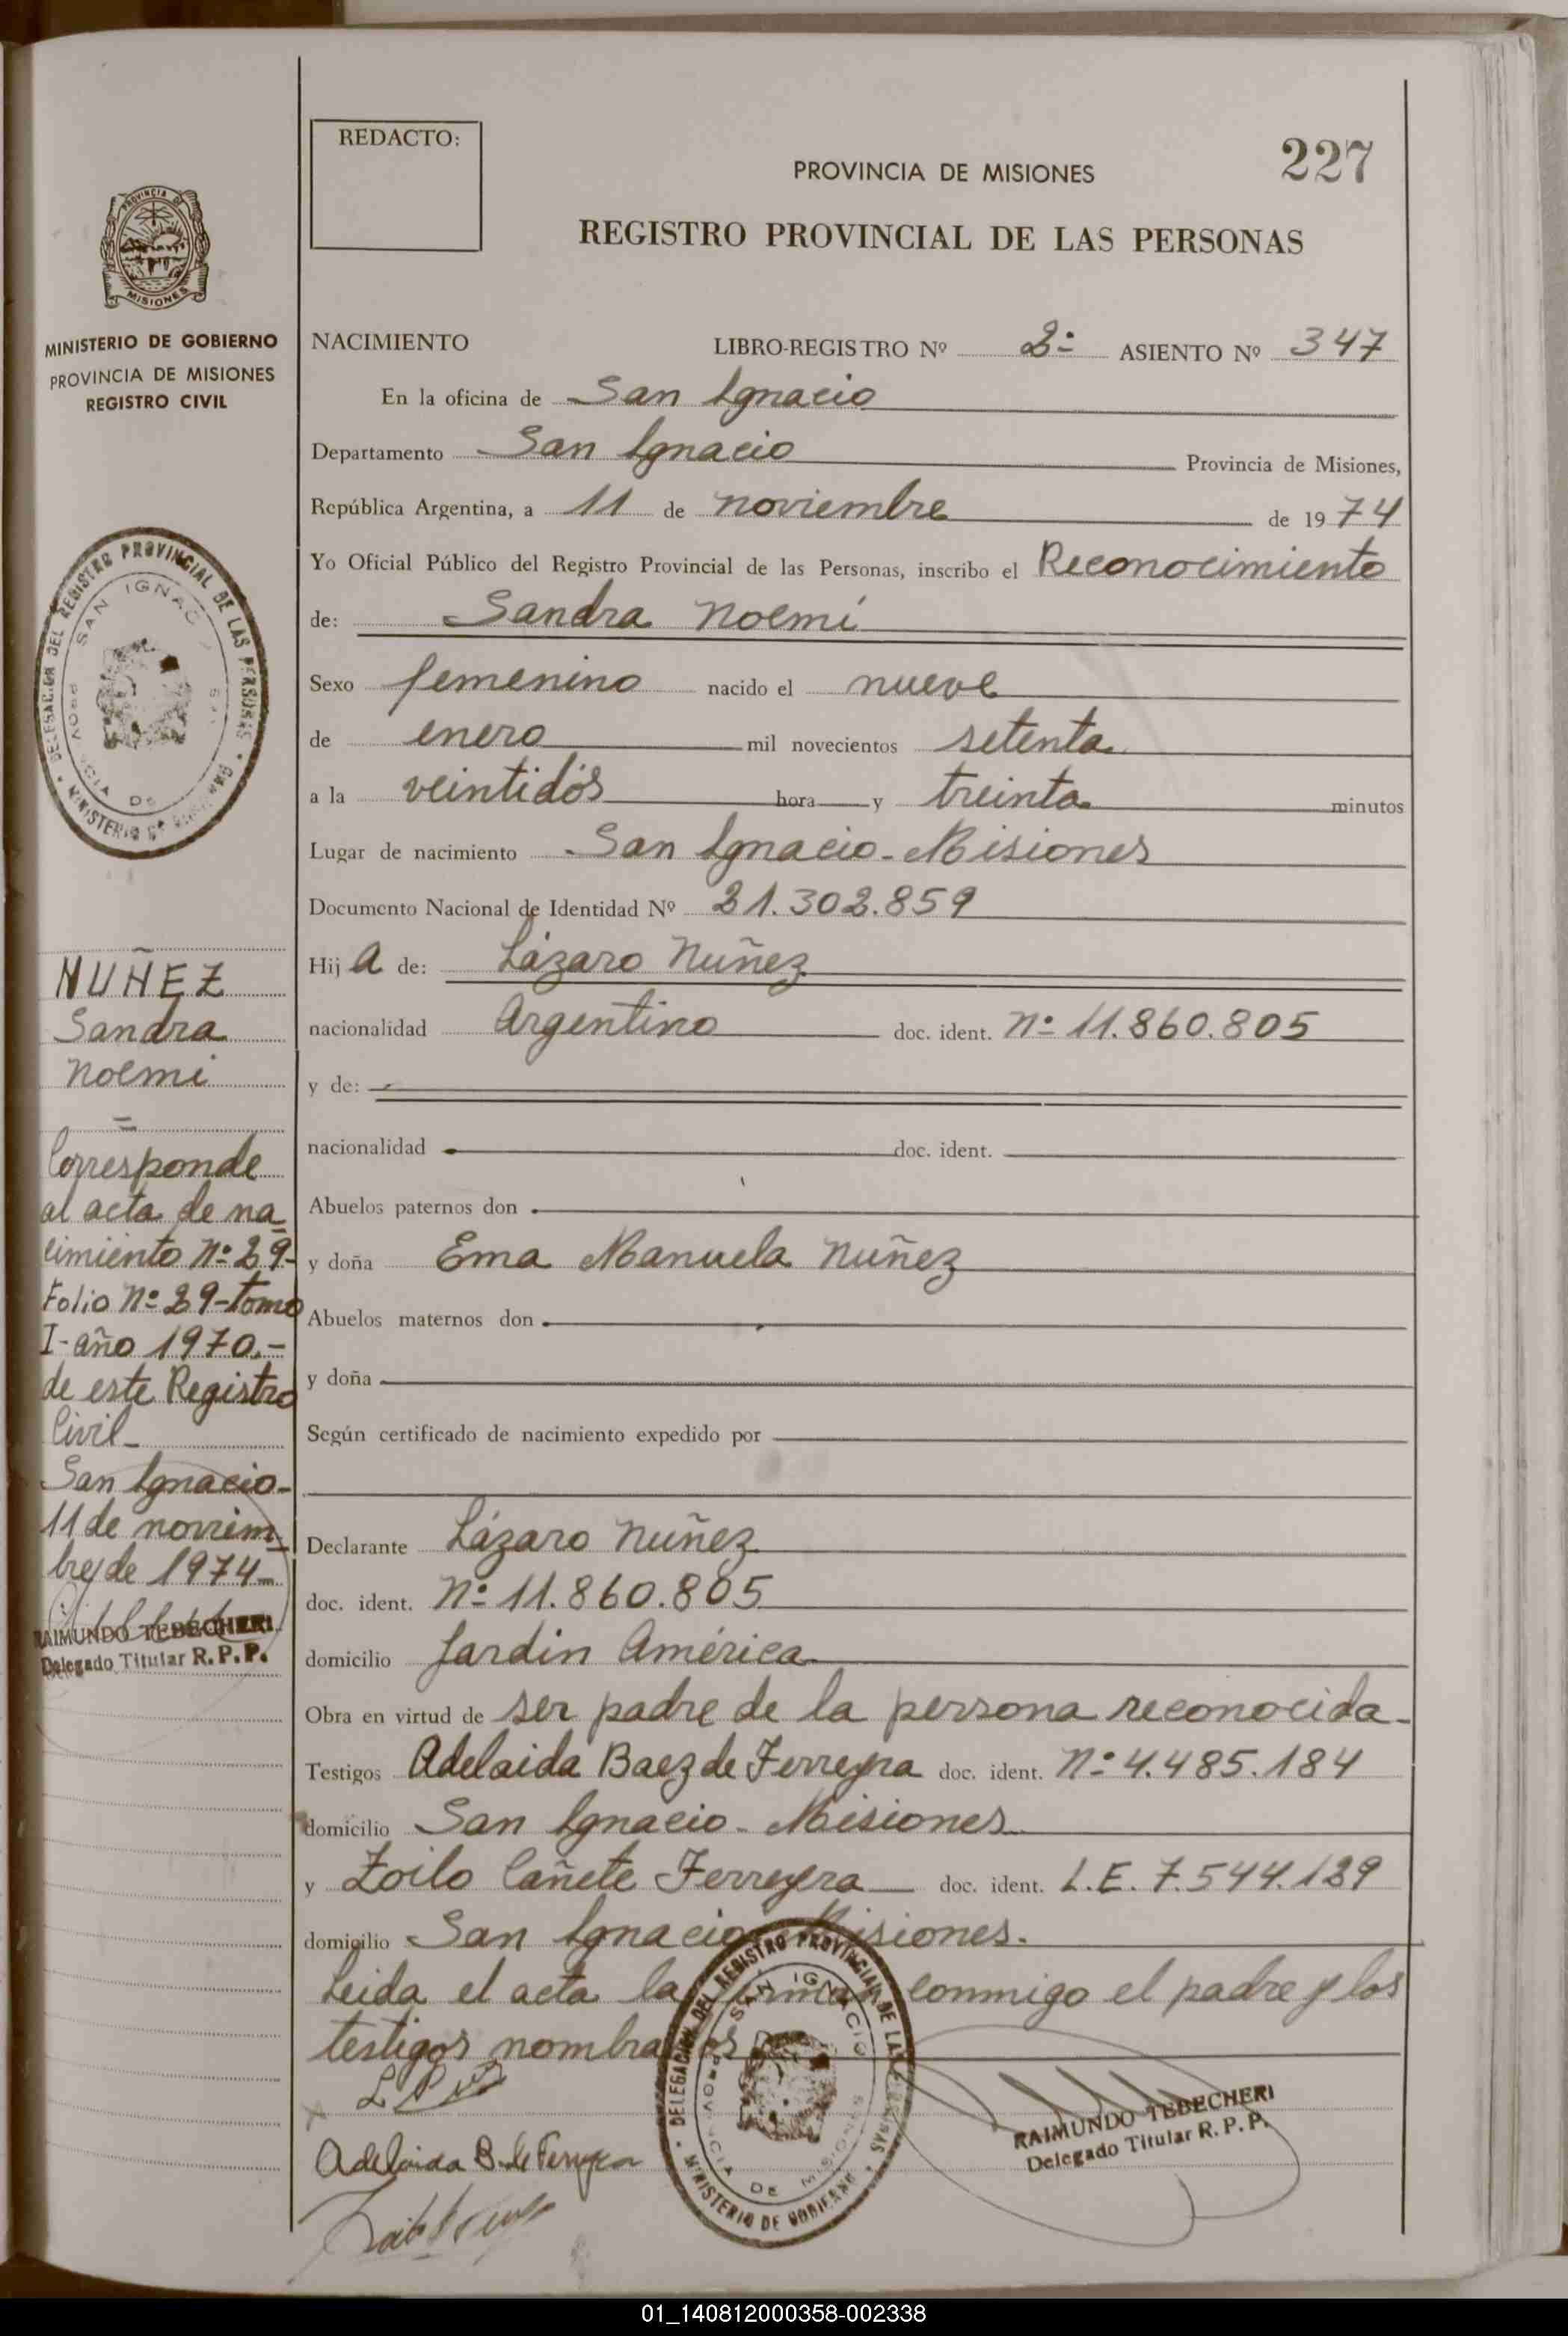 REDACTO:
227
PROVINCIA DE MISIONES
REGISTRO PROVINCIAL DE LAS PERSONAS
PROVINCIA DE
MISIONES
MINISTERIO DE GOBIERNO
PROVINCIA DE MISIONES
REGISTRO CIVIL
NACIMIENTO LIBRO-REGISTRO Nº 2º ASIENTO Nº 347
En la oficina de San Ignacio
Departamento San Ignacio Provincia de Misiones,
República Argentina, a 11 de noviembre de 1974
Yo Oficial Público del Registro Provincial de las Personas, inscribo el Reconocimiento
de: Sandra Noemí
Sexo femenino nacido el nueve
de enero mil novecientos setenta
a la veintidós hora y treinta minutos
Lugar de nacimiento San Ignacio - Misiones
Documento Nacional de Identidad Nº 21.302.859
Hija de: Lázaro Nuñez
nacionalidad Argentino doc. ident. Nº 11.860.805
y de:
nacionalidad doc. ident.
Abuelos paternos don
y doña Ema Manuela Nuñez
Abuelos maternos don
y doña
Según certificado de nacimiento expedido por
Declarante Lázaro Nuñez
doc. ident. Nº 11.860.805
domicilio Jardin América
Obra en virtud de ser padre de la persona reconocida-
Testigos Adelaida Baez de Ferreyra doc. ident. Nº 4.485.184
domicilio San Ignacio - Misiones
y Zoilo Cañete Ferreyra doc. ident. L.E. 7.544.129
domicilio San Ignacio Misiones.
Leida el acta la firman conmigo el padre y los
testigos nombrados
Adelaida B. de Ferreyra
RAIMUNDO TEDECHERI
Delegado Titular R. P. P.
DELEGACION DEL REGISTRO PROVINCIAL DE LAS PERSONAS
MINISTERIO DE GOBIERNO
SAN IGNACIO
PROVINCIA DE MISIONES
DELEGACION DEL REGISTRO PROVINCIAL DE LAS PERSONAS
MINISTERIO DE
SAN IGNAC
NUÑEZ
Sandra
Noemi
Corresponde
al acta de na
cimiento Nº 29-
Folio Nº 29-tomo
I-año 1970.-
de este Registro
Civil-
San Ignacio-
11 de noviem
bre de 1974-
RAIMUNDO TEDECHERI
Delegado Titular R. P. P.
01_140812000358-002338